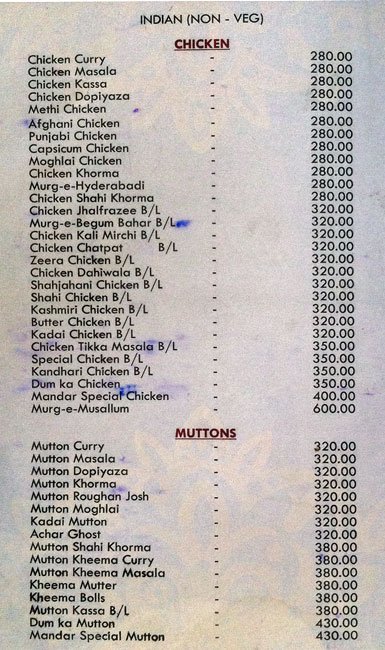 INDIAN (NON - VEG)
CHICKEN
Chicken Curry - 280.00
Chicken Masala - 280.00
Chicken Kassa - 280.00
Chicken Dopiyaza - 280.00
Methi Chicken - 280.00
Afghani Chicken - 280.00
Punjabi Chicken - 280.00
Capsicum Chicken - 280.00
Moghlai Chicken - 280.00
Chicken Khorma - 280.00
Murg-e-Hyderabadi - 280.00
Chicken Shahi Khorma - 280.00
Chicken Jhalfrazee B/L - 320.00
Murg-e-Begum Bahar B/L - 320.00
Chicken Kali Mirchi B/L - 320.00
Chicken Chatpat B/L - 320.00
Zeera Chicken B/L - 320.00
Chicken Dahiwala B/L - 320.00
Shahjahani Chicken B/L - 320.00
Shahi Chicken B/L - 320.00
Kashmiri Chicken B/L - 320.00
Butter Chicken B/L - 320.00
Kadai Chicken B/L - 320.00
Chicken Tikka Masala B/L - 350.00
Special Chicken B/L - 350.00
Kandhari Chicken B/L - 350.00
Dum ka Chicken - 350.00
Mandar Special Chicken - 400.00
Murg-e-Musallum - 600.00
MUTTONS
Mutton Curry - 320.00
Mutton Masala - 320.00
Mutton Dopiyaza - 320.00
Mutton Khorma - 320.00
Mutton Roughan Josh - 320.00
Mutton Moghlai - 320.00
Kadai Mutton - 320.00
Achar Ghost - 320.00
Mutton Shahi Khorma - 380.00
Mutton Kheema Curry - 380.00
Mutton Kheema Masala - 380.00
Kheema Mutter - 380.00
Kheema Bolls - 380.00
Mutton Kassa B/L - 380.00
Dum ka Mutton - 430.00
Mandar Special Mutton - 430.00